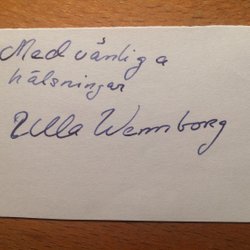 Med vänliga
hälsningar
Ulla Wennborg